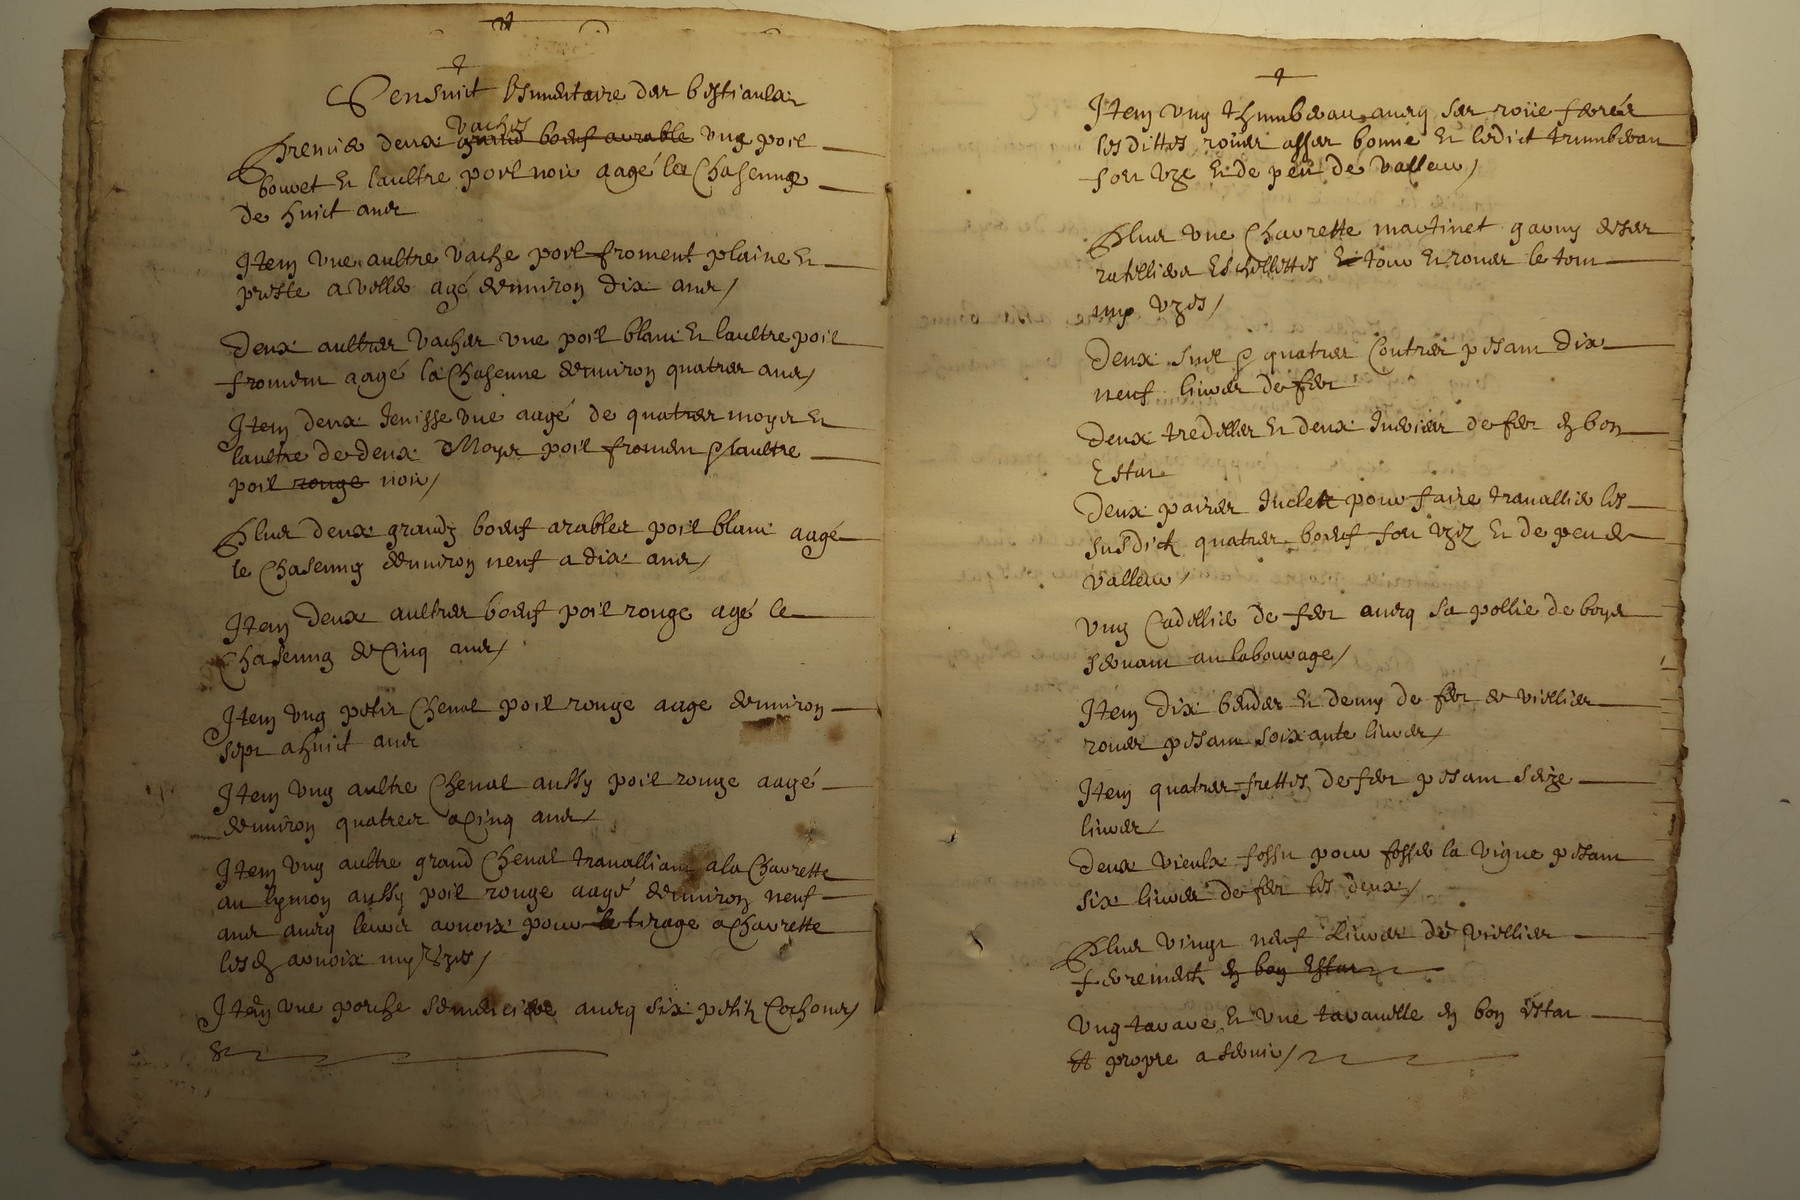 Sensuit linventaire des bestiaulx
vaches
Premier deux grand boeuf arable ung poil
bouvet et laultre poil noir aagé le chasenne
de huict ans
Item une aultre vache poil froment plaine et
preste a veller agé denviron dix ans /
Deux aultres vaches une poil blanc et laultre poil
fromen aagé la chasenne denviron quatres ans /
Item deux Jenisse une aagé de quatres moys et
laultre de deux Moys poil fromen & laultre
poil rouge noir /
Plus deux grandz boeuf arables poil blanc aagé
le chasenng denviron neuf a dix ans /
Item deux aultres boeuf poil rouge agé le
chasenng de Cinq ans /
Item ung petit Cheval poil rouge aage denviron
sept a huict ans
Item ung aultre Cheval aussy poil rouge aagé
denviron quatres a Cinq ans /
Item ung aultre grand Cheval travalliant a la Charette
au lymon aussy poil rouge aagé denviron neuf
ans avecq leurs arnoix pour le tirage a Charette
lesd arnoix my Uzes /
Item une porche avecq six petitz Cochons /
Item ung thumbereau avecq ses roüe ferés
lesdittes roües asses bonne et ledict trumbereau
fort Uzé et de peu de valleur /
Plus une Charette martinet garny de ses
ratellier Eschellettes Et tour et roues le tout
my Uzes /
Deux soul & quatres Coutres pesant dix
neuf livres de fer
Deux tredelles et deux de fer en bon
Estat
Deux paires Juclet pour faire travallier les
susdictz quatres boeuf fort Uzez et de peu de
valleur /
Ung Cadellier de fer avecq sa pollie de boys
servant au labourage /
Item dix bendes et demy de fer de viellies
roues pesant soixante livres /
Item quatres frettes de fer pesant seize
livres /
Deux vieulx fossu pour fosser la vigne pesant
six livres de fer les deux /
Plus vingt neuf Livres de viellies
ferementz en bon Estat
Ung tarare et une taravelle en bon Estat
Et propre a servir /